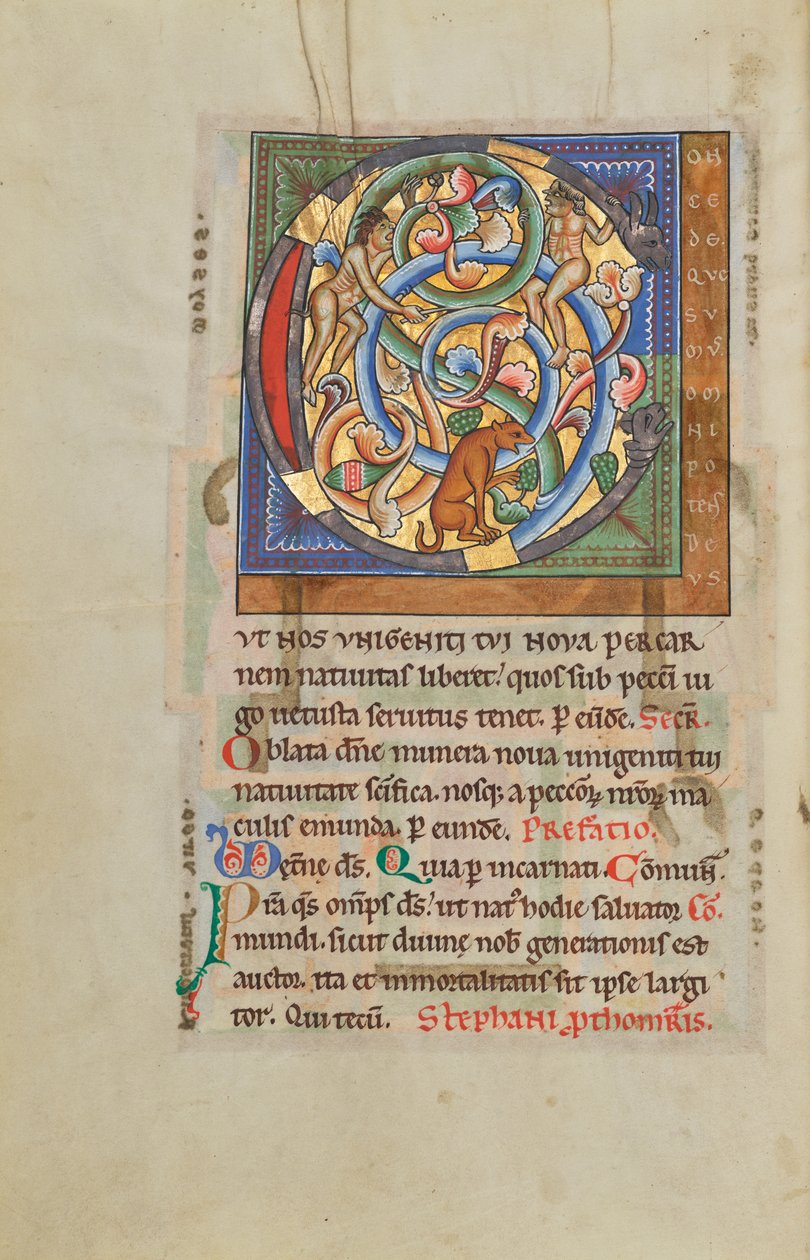 C
ON
CE
DE.
QVE
SV
MV̄.
OM
NI
PO
TE̅S
DE
VS.
VT NOS VNIGENITI TVI NOVA PER CAR
nem natiuitas liberet! quos sub pecc̄i iu
go uetusta seruitus tenet. P̲ eūde. SECR̄.
Oblata dn̄e munera noua unigeniti tui
natiuitate sc̄ifica. nosq; a pecc̄oꝝ nr̄oꝝ ma
culis emunda. P̲ eunde. PREFATIO.
VD et̄nę ds̄. Quia p̲ incarnati. Cōmuī.
Pr̄a qs̄ omp̄s ds̄! ut natꝰ hodie saluator Cō.
mundi. sicut diuinę nob̄ generationis est
auctor. ita et inmortalitatis sit ipse largi
tor. Qui tecū. STEPHANI ꝓthomr̄is.
moyses.